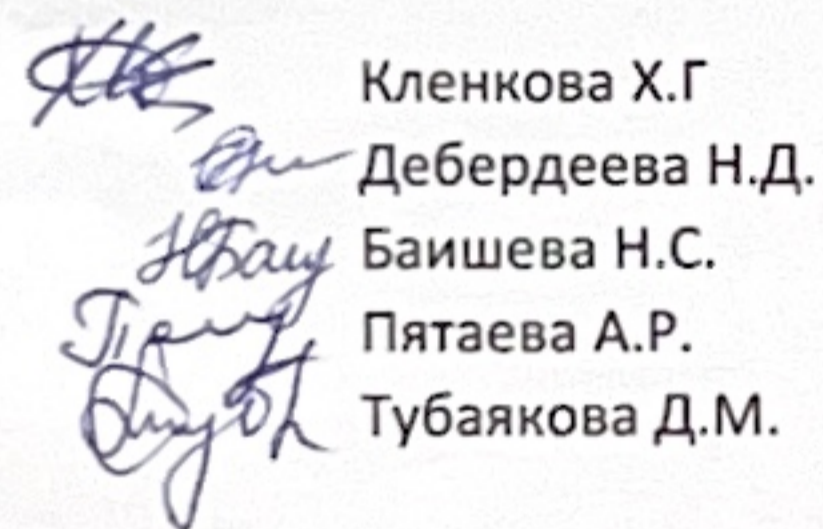 Кленкова Х.Г
Дебердеева Н.Д.
Баишева Н.С.
Пятаева А.Р.
Тубаякова Д.М.